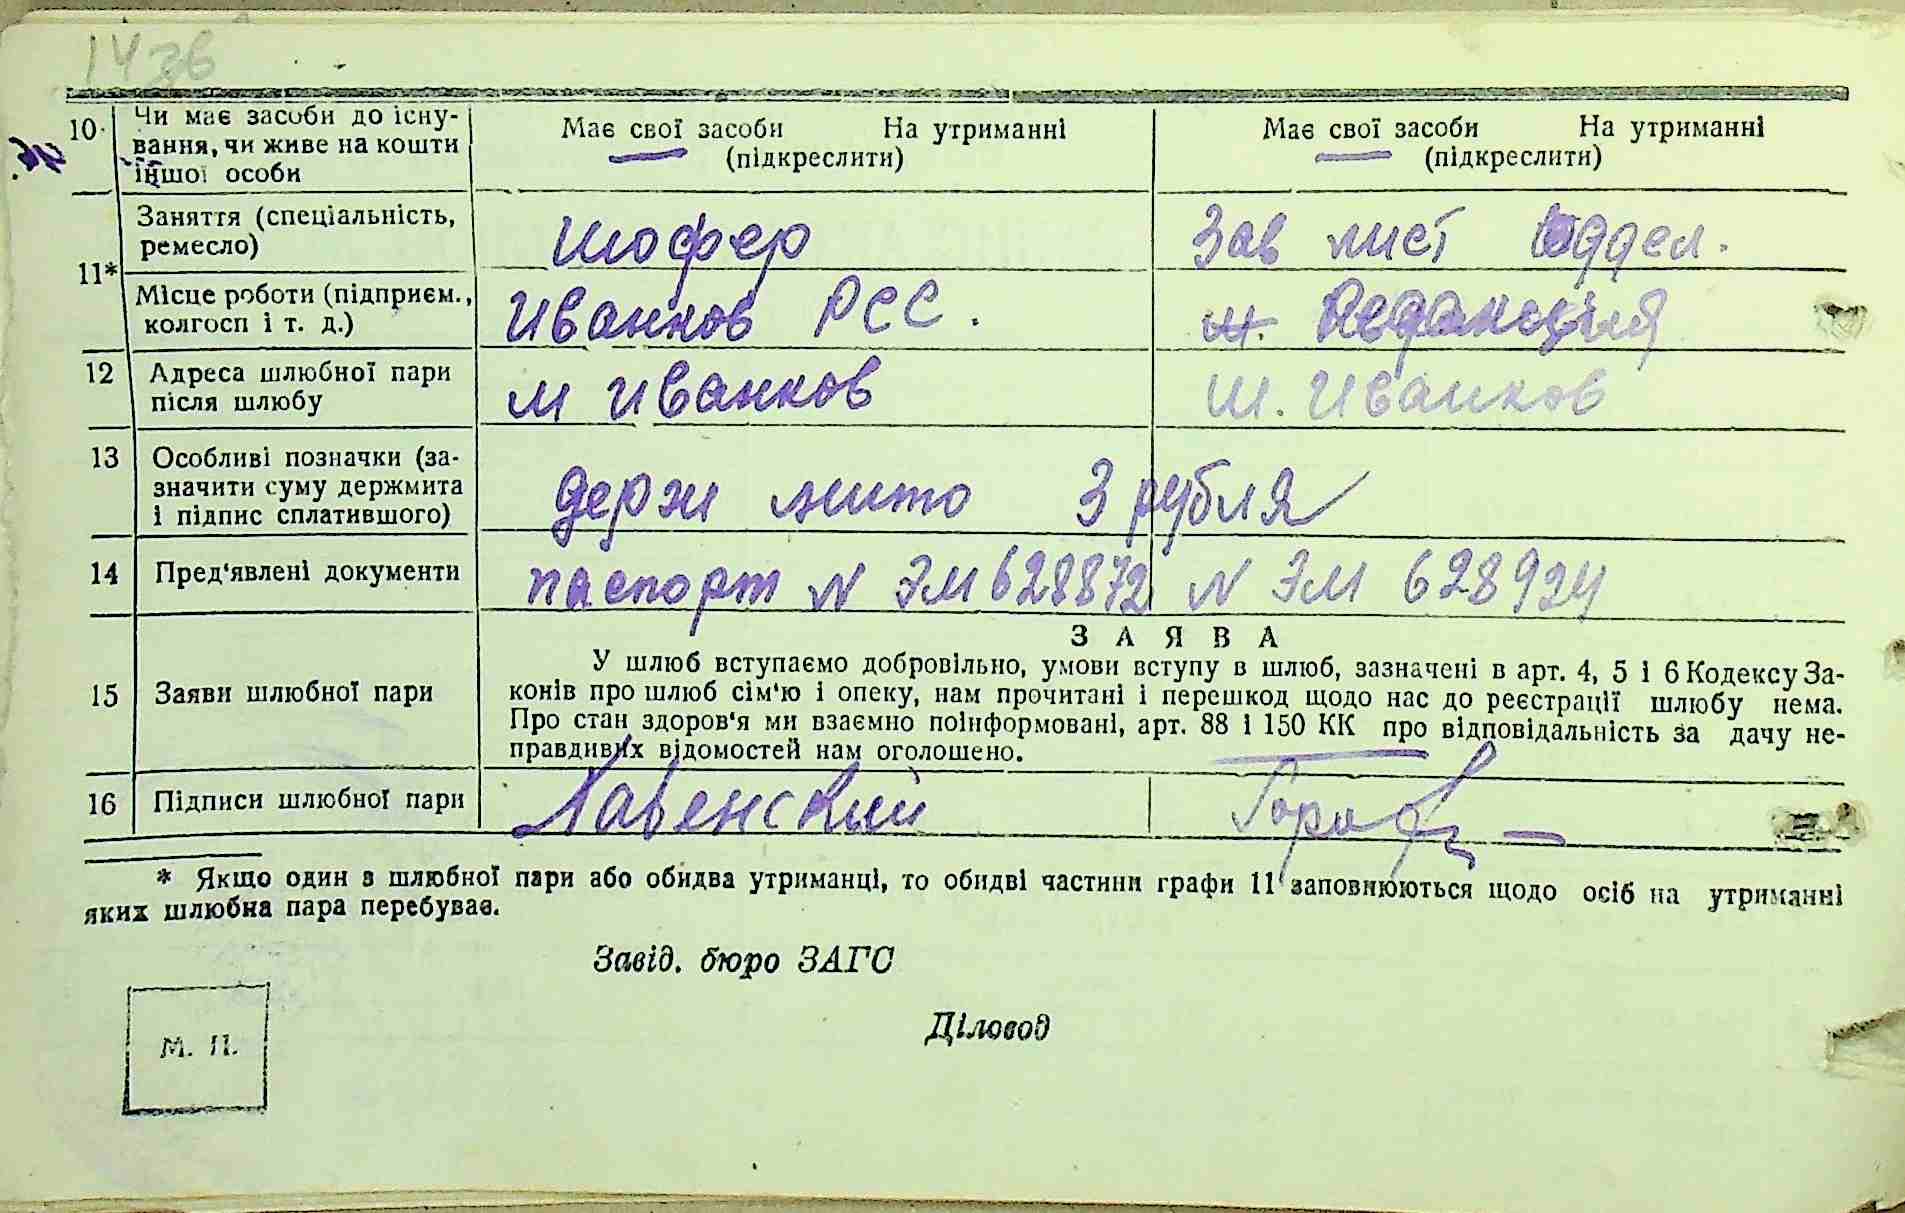 14 зв
10. Чи має засоби до існу-
вання, чи живе на кошти
іншої особи
Має свої засоби На утриманні
(підкреслити)
Має свої засоби На утриманні
(підкреслити)
11* Заняття (спеціальність,
ремесло)
Шофер
Зав лист оддел.
Місце роботи (підприєм.,
колгосп і т. д.)
Иванков РСС.
м. Редакція
12 Адреса шлюбної пари
після шлюбу
м Иванков
м. Иванков
13 Особливі позначки (за-
значити суму держмита
і підпис сплатившого)
держ мито 3 рубля
14 Пред'явлені документи
паспорт N ЭМ 628872 N ЭМ 628924
ЗАЯВА
15 Заяви шлюбної пари
У шлюб вступаємо добровільно, умови вступу в шлюб, зазначені в арт. 4, 5 і 6 Кодексу За-
конів про шлюб сім'ю і опеку, нам прочитані і перешкод щодо нас до реєстрації шлюбу нема.
Про стан здоров'я ми взаємно поінформовані, арт. 88 і 150 КК про відповідальність за дачу не-
правдивих відомостей нам оголошено.
16 Підписи шлюбної пари
* Якщо один з шлюбної пари або обидва утриманці, то обидві частини графи 11 заповнюються щодо осіб на утриманні
яких шлюбна пара перебуває.
Завід. бюро ЗАГС
Діловод
М. П.